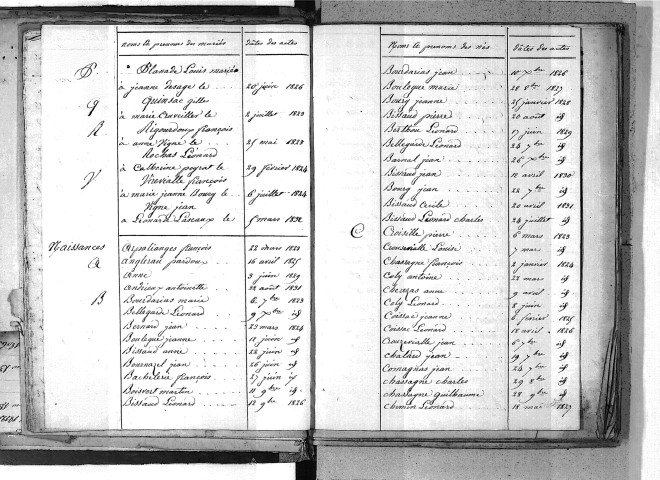 noms et prenoms des mariés dates des actes
P Blanade Louis mariés
à jeanne desage le 20 juin 1826
Q Quinsac gilles
à marie Cruveilles le 2 juillet 1823
R Rigourdoux françois
à anne Vigne le 25 mai 1823
Rochas Léonard
à Catherine peyrat le 29 février 1824
V Virevialle françois
à marie jeanne Boury le 6 juillet 1824
Vigne jean
à Léonarde Lascaux le 5 mars 1832
Naissances françois 22 mars 1823
A pardoux 16 avril 1825
Anne 3 juin 1829
Andrieux antoinette 22 août 1831
B Bourdarias marie 6 7bre 1823
Bellegarde Léonard 9 Xbre id
Bernard jean 23 mars 1824
Boulegue jeanne 11 juin id
Bissaud anne 22 juin id
Bournazel jean 26 juin id
Bachelerie françois 27 juin id
Boisvert martin 11 9bre id
Bissaud Léonard 12 9bre 1826
Noms et prenoms des nés Dates des actes
Bourdarias jean 10 Xbre 1826
Boulegue marie 28 8bre 1827
Boury jeanne 25 janvier 1828
Bissaud pierre 20 août id
Berthou Léonard 17 juin 1829
Bellegarde Léonard 25 7bre id
Barnal jean 26 Xbre id
Bissaud jean 12 avril 1830
Boury jean 22 7bre id
Bissaud Cecile 20 avril 1831
Bissaud Léonard charles 24 juillet id
C Croisille pierre 6 mars 1823
Louise 7 mars id
Chassagne françois 2 janvier 1824
Coly antoine 22 mars id
anne 9 avril id
Coly Léonard 8 juin id
Coissac jeanne 6 février 1825
Coissac Léonard 18 avril 1826
Crouzevialle jean 6 7bre id
Chalard jean 19 7bre id
Comagnas jean 24 7bre id
Chassagne charles 29 8bre id
Chassagne guilhaume 28 9bre id
Chemin Léonard 18 mai 1827